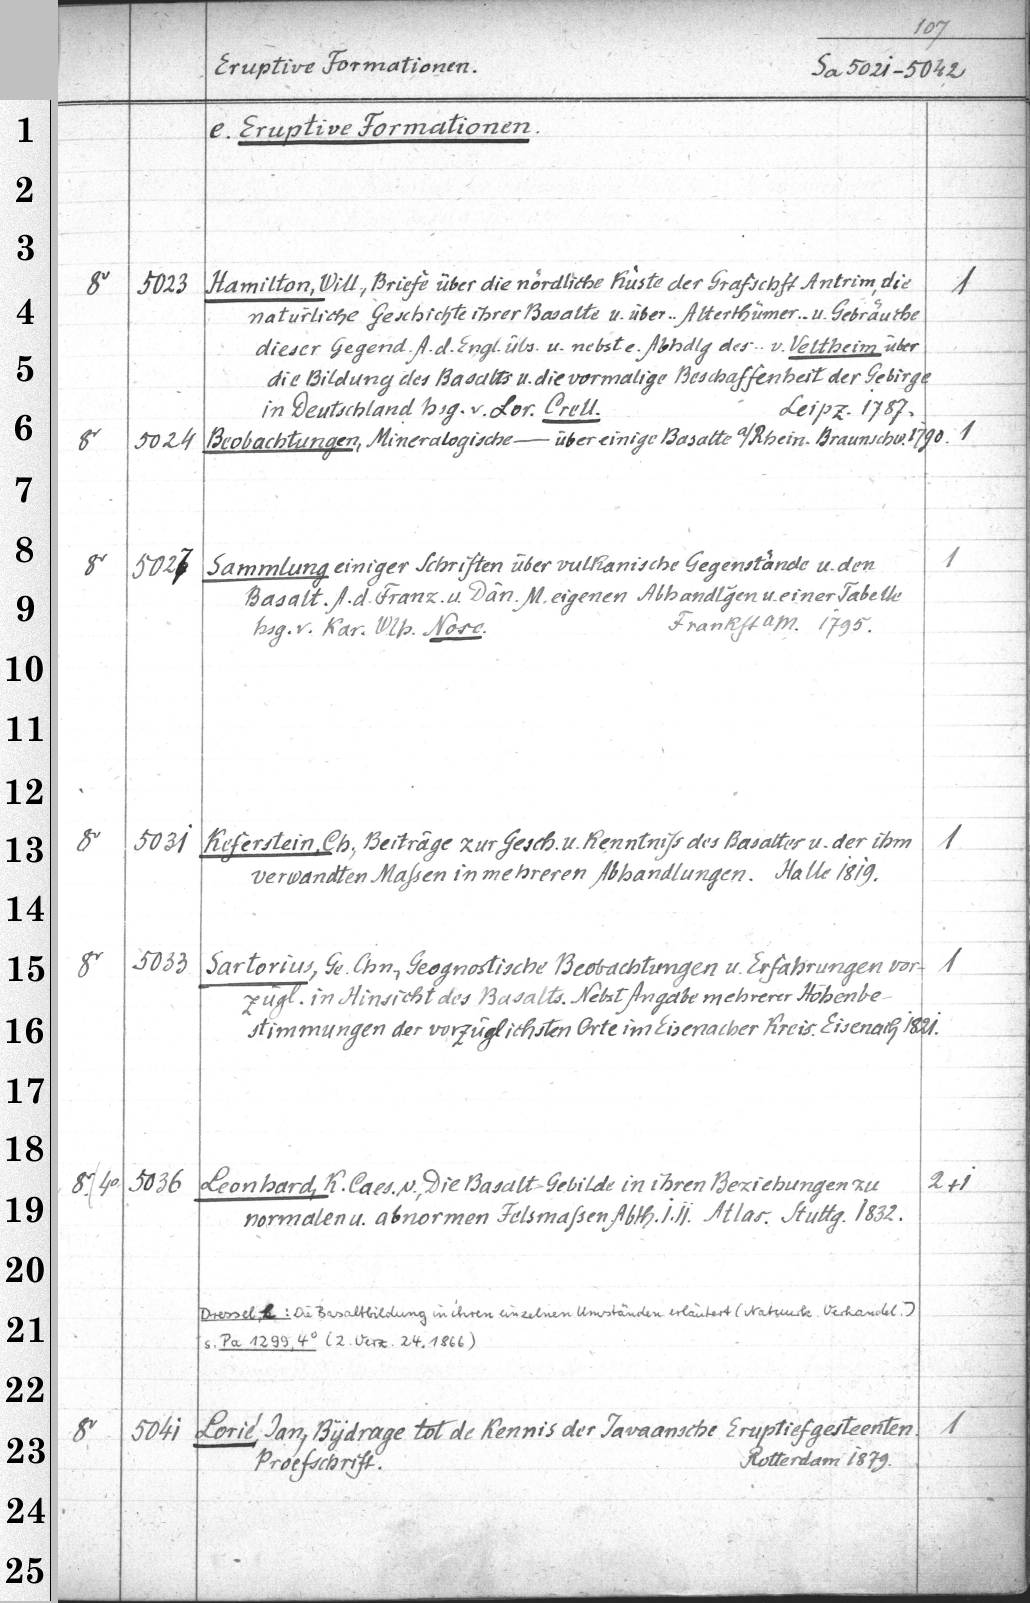 107
Eruptive Formationen. Sa 5021-5042
1 e. Eruptive Formationen.
2
3
8º 5023 Hamilton, Will., Briefe über die nördliche Küste der Grafschft Antrim, die 1
4 natürliche Geschichte ihrer Basalte u. über.. Alterthümer.. u. Gebräuche
dieser Gegend. A. d. Engl. übs. u. nebst e. Abhdlg des.. v. Veltheim über
5 die Bildung des Basalts u. die vormalige Beschaffenheit der Gebirge
in Deutschland hsg. v. Lor. Crell. Leipz. 1787.
6 8º 5024 Beobachtungen, Mineralogische — über einige Basalte a/Rhein. Braunschw. 1790. 1
7
8 8º 5027 Sammlung einiger Schriften über vulkanische Gegenstände u. den 1
9 Basalt. A. d. Franz. u. Dän. M. eigenen Abhandlgen u. einer Tabelle
hsg. v. Kar. Wlh. Nose. Frankft a M. 1795.
10
11
12
13 8º 5031 Keferstein, Ch., Beiträge zur Gesch. u. Kenntniſs des Basaltes u. der ihm 1
verwandten Maſsen in mehreren Abhandlungen. Halle 1819.
14
15 8º 5033 Sartorius, Ge. Chn., Geognostische Beobachtungen u. Erfahrungen vor- 1
zügl. in Hinsicht des Basalts. Nebst Angabe mehrerer Höhenbe-
16 stimmungen der vorzüglichsten Orte im Eisenacher Kreis. Eisenach 1821.
17
18
8º/4º 5036 Leonhard, K. Caes. v., Die Basalt-Gebilde in ihren Beziehungen zu 2+1
19 normalen u. abnormen Felsmaſsen Abth. I. II. Atlas. Stuttg. 1832.
20
Dressel, L: Die Basaltbildung in ihren einzelnen Umständen erläutert (Natuurk. Verhandel.)
21 s. Pa 1299, 4º (2. Verz. 24. 1866)
22
8º 5041 Lorié, Jan, Bijdrage tot de Kennis der Javaansche Eruptiefgesteenten. 1
23 Proefschrift. Rotterdam 1879.
24
25